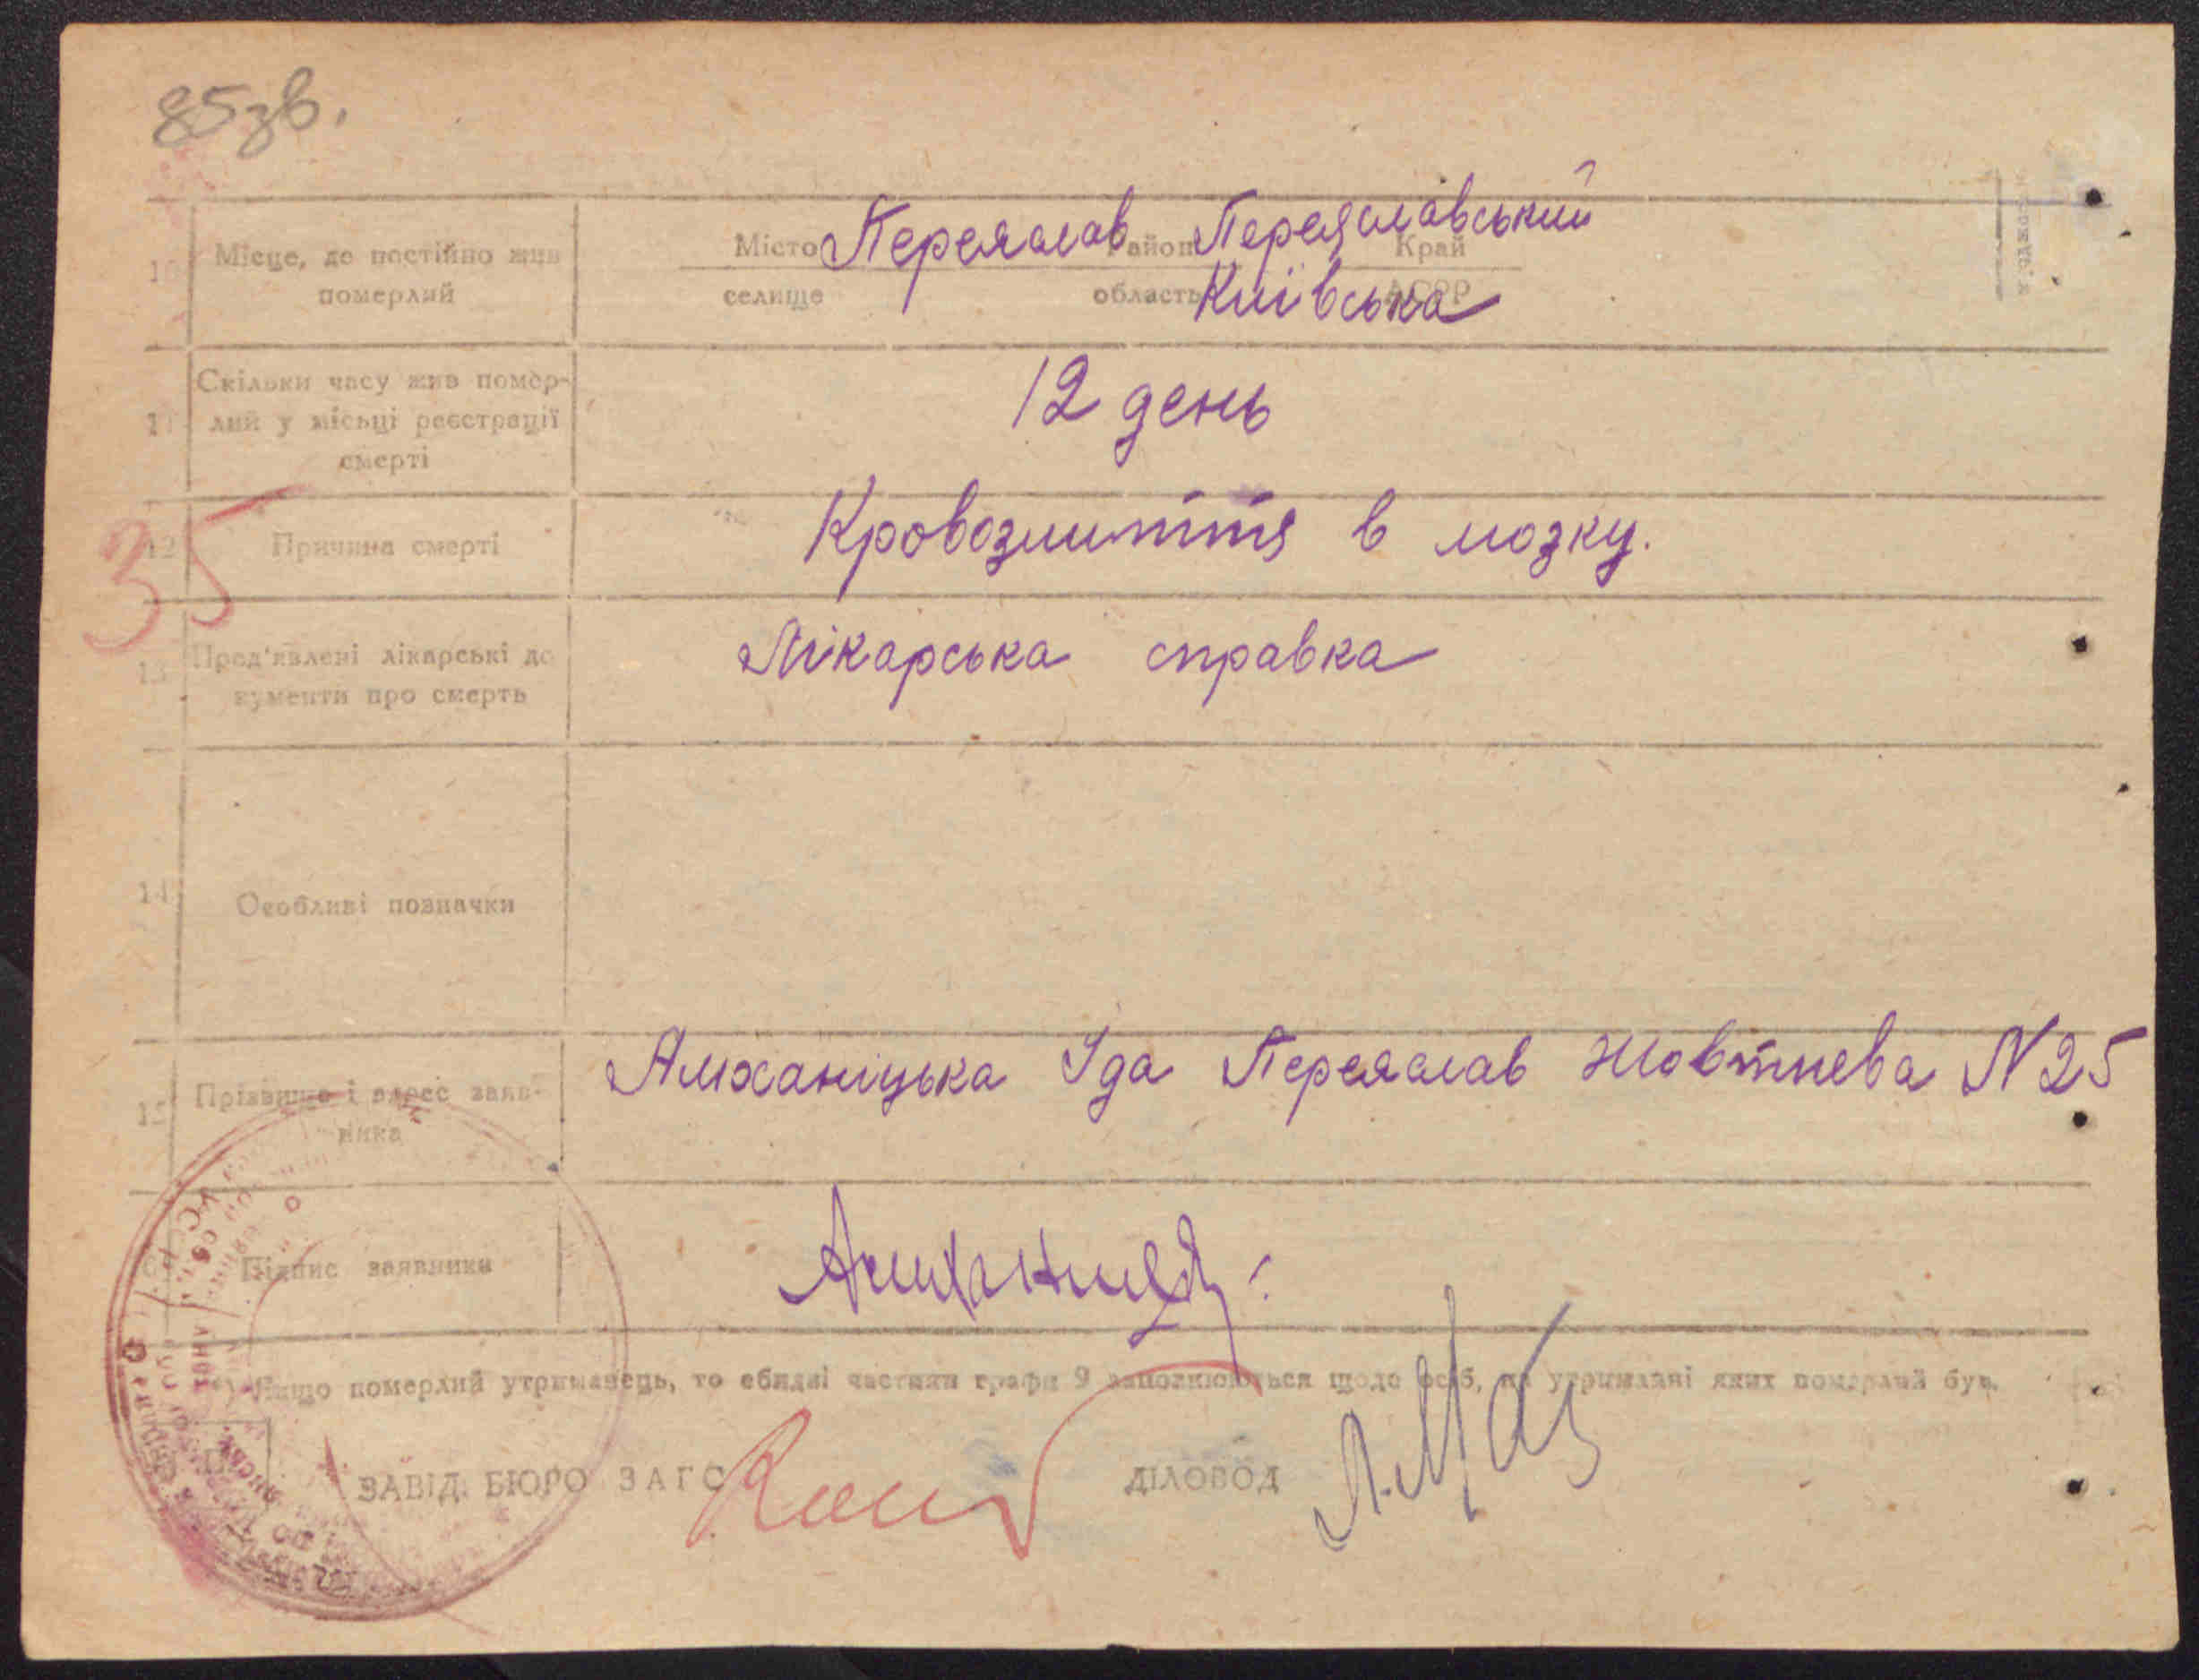 85зв.
10 Місце, де постійно жив померлий
Місто Переяслав Район Переяславський Край
селище область Київська АСРР
11 Скільки часу жив померлий у місьці реєстрації смерті
12 день
35
12 Причина смерті
Кровозлиття в мозку.
13 Пред'явлені лікарські документи про смерть
Лікарська справка
14 Особливі позначки
15 Прізвище і адрес заявника
Амханіцька Іда Переяслав Жовтнева N 25
Підпис заявника
Якщо померлий утриманець, то обидві частини графи 9 заповнюються щодо осіб, на утриманні яких померлий був.
ЗАВІД. БЮРО ЗАГС ДІЛОВОД